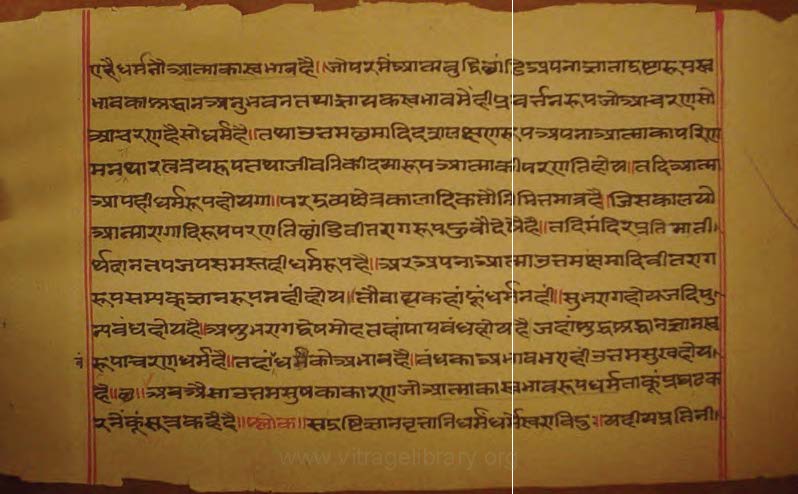 एहै धर्मतौ आत्माका स्वभाव है॥ जो परमें आत्मबुद्धि छांडि अपना ज्ञाता द्रष्टा रूप स्व
भावका श्रद्धान अनुभवन तथा ज्ञायक स्वभावमैंही प्रवर्त्तनरूप जो आचरण सो
आचरण है सो धर्म है॥ तथा उत्तमछमादि दश लक्षण रूप अपना आत्माका परिण
मन तथा रत्नत्रय रूप तथा जीवनिकी दयारूप आत्माकी परणति होय॥ तदि आत्मा
आपही धर्मरूप होयगा॥ परद्रव्य छेत्र कालादिक तौ निमित्त मात्र है॥ जिसकाल यो
आत्मा रागादिरूप परणति छांडि वीतराग रूप हुवौ देखै है॥ तदि मंदिर प्रतिमा ती।
र्थ दान तप जप समस्तही धर्मरूप है॥ अर अपना आत्मा उत्तम क्षमादि वीतराग
रूप सम्यक्ज्ञानरूप नहीं होय॥ तौ वाह्य कहांहूं धर्म नहीं॥ सुभराग होय जदि पु
न्य बंध होय है॥ अशुभ राग द्वेष मोह तहां पाप बंध होय है जहां शुद्ध श्रद्धान ज्ञान स्व
रूपाचरण धर्म है॥ तहां धर्मको अभाव है॥ बंधका अभाव भए ही उत्तम सुख होय
है॥ छ॥ अब ऐसा उत्तम सुषका कारण जो आत्माका स्वभावरूप धर्म ताकूं प्रघट क
रनेंकूं सूत्र कहै है॥ श्लोक॥ सदृष्टि ज्ञान वृत्तानि धर्मं धर्मेस्वरा विदुः॥ यदीय प्रतिनी।
www.vitragelibrary.org